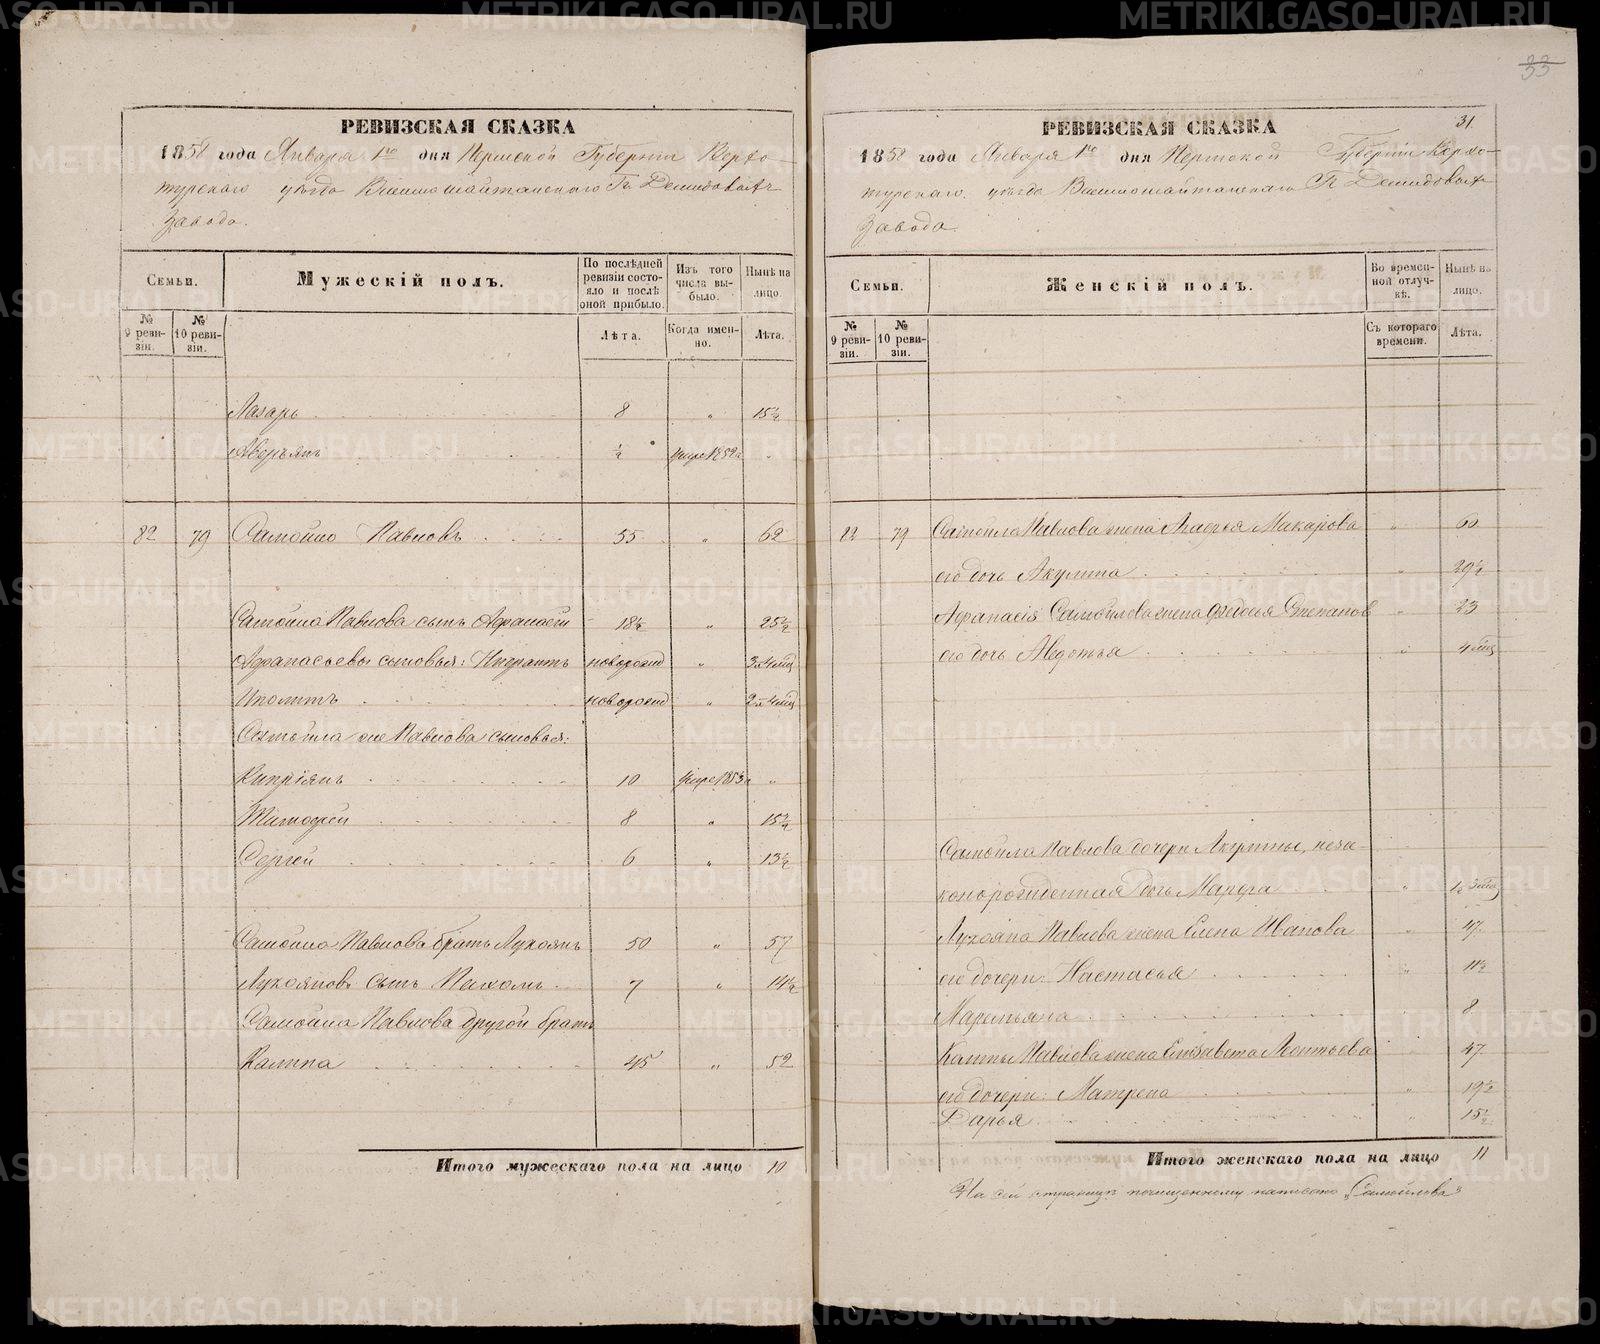 РЕВИЗСКАЯ СКАЗКА
1858 года Января 1го дня Пермской Губернiи Верхо-
турскаго уѣзда Висимошайтанскаго Гг. Демидовыхъ
Завода.
Семьи.
Мужескiй полъ.
По послѣдней ревизiи состояло и послѣ оной прибыло.
Изъ того числа выбыло.
Нынѣ на лицо.
№ 9 ревизiи.
№ 10 ревизiи.
Лѣта.
Когда именно.
Лѣта.
Лазарь 8 " 15½
Аверьянъ ½ умре 1852 "
82 79 Самойло Павловъ 55 " 62
Самойла Павлова сынъ Афанасей 18½ " 25½
Афанасьевы сыновья: новорожд "
Иполитъ новорожд "
Самойла же Павлова сыновья:
Кипрiянъ 10 умре 1853 "
Тимофей 8 " 15½
Сергей 6 " 13½
Самойла Павлова братъ Лукоянъ 50 " 57
Лукояновъ сынъ Пахомъ 7 " 14½
Самойла Павлова другой братъ
Калина 45 " 52
Итого мужескаго пола на лицо 10
33
31.
РЕВИЗСКАЯ СКАЗКА
1858 года Января 1го дня Пермской Губернiи Верхо-
турскаго уѣзда Висимошайтанскаго Г. Демидовыхъ
Завода.
Семьи.
Женскiй полъ.
Во временной отлучкѣ.
Нынѣ на лицо.
№ 9 ревизiи.
№ 10 ревизiи.
Съ котораго времени.
Лѣта.
82 79 Самойла Павлова жена Макарова " 60
его дочь Акулина " 29½
Афанасiя Самойлова жена Федосья Степанов " 23
его дочь Авдотья " 4 мѣц
Самойла Павлова дочери Акулины, неза-
конорожденная дочь Марфа "
Лукояна Павлова жена Елена Иванова " 47
его дочери: Настасья " 11½
Маремьяна " 8
Калины Павлова жена Елизавета Леонтьева 47
его дочери: Матрена " 19½
Дарья " 15½
Итого женскаго пола на лицо 11
На сей страницѣ почищенному написано „Самойлова"
METRIKI.GASO-URAL.RU